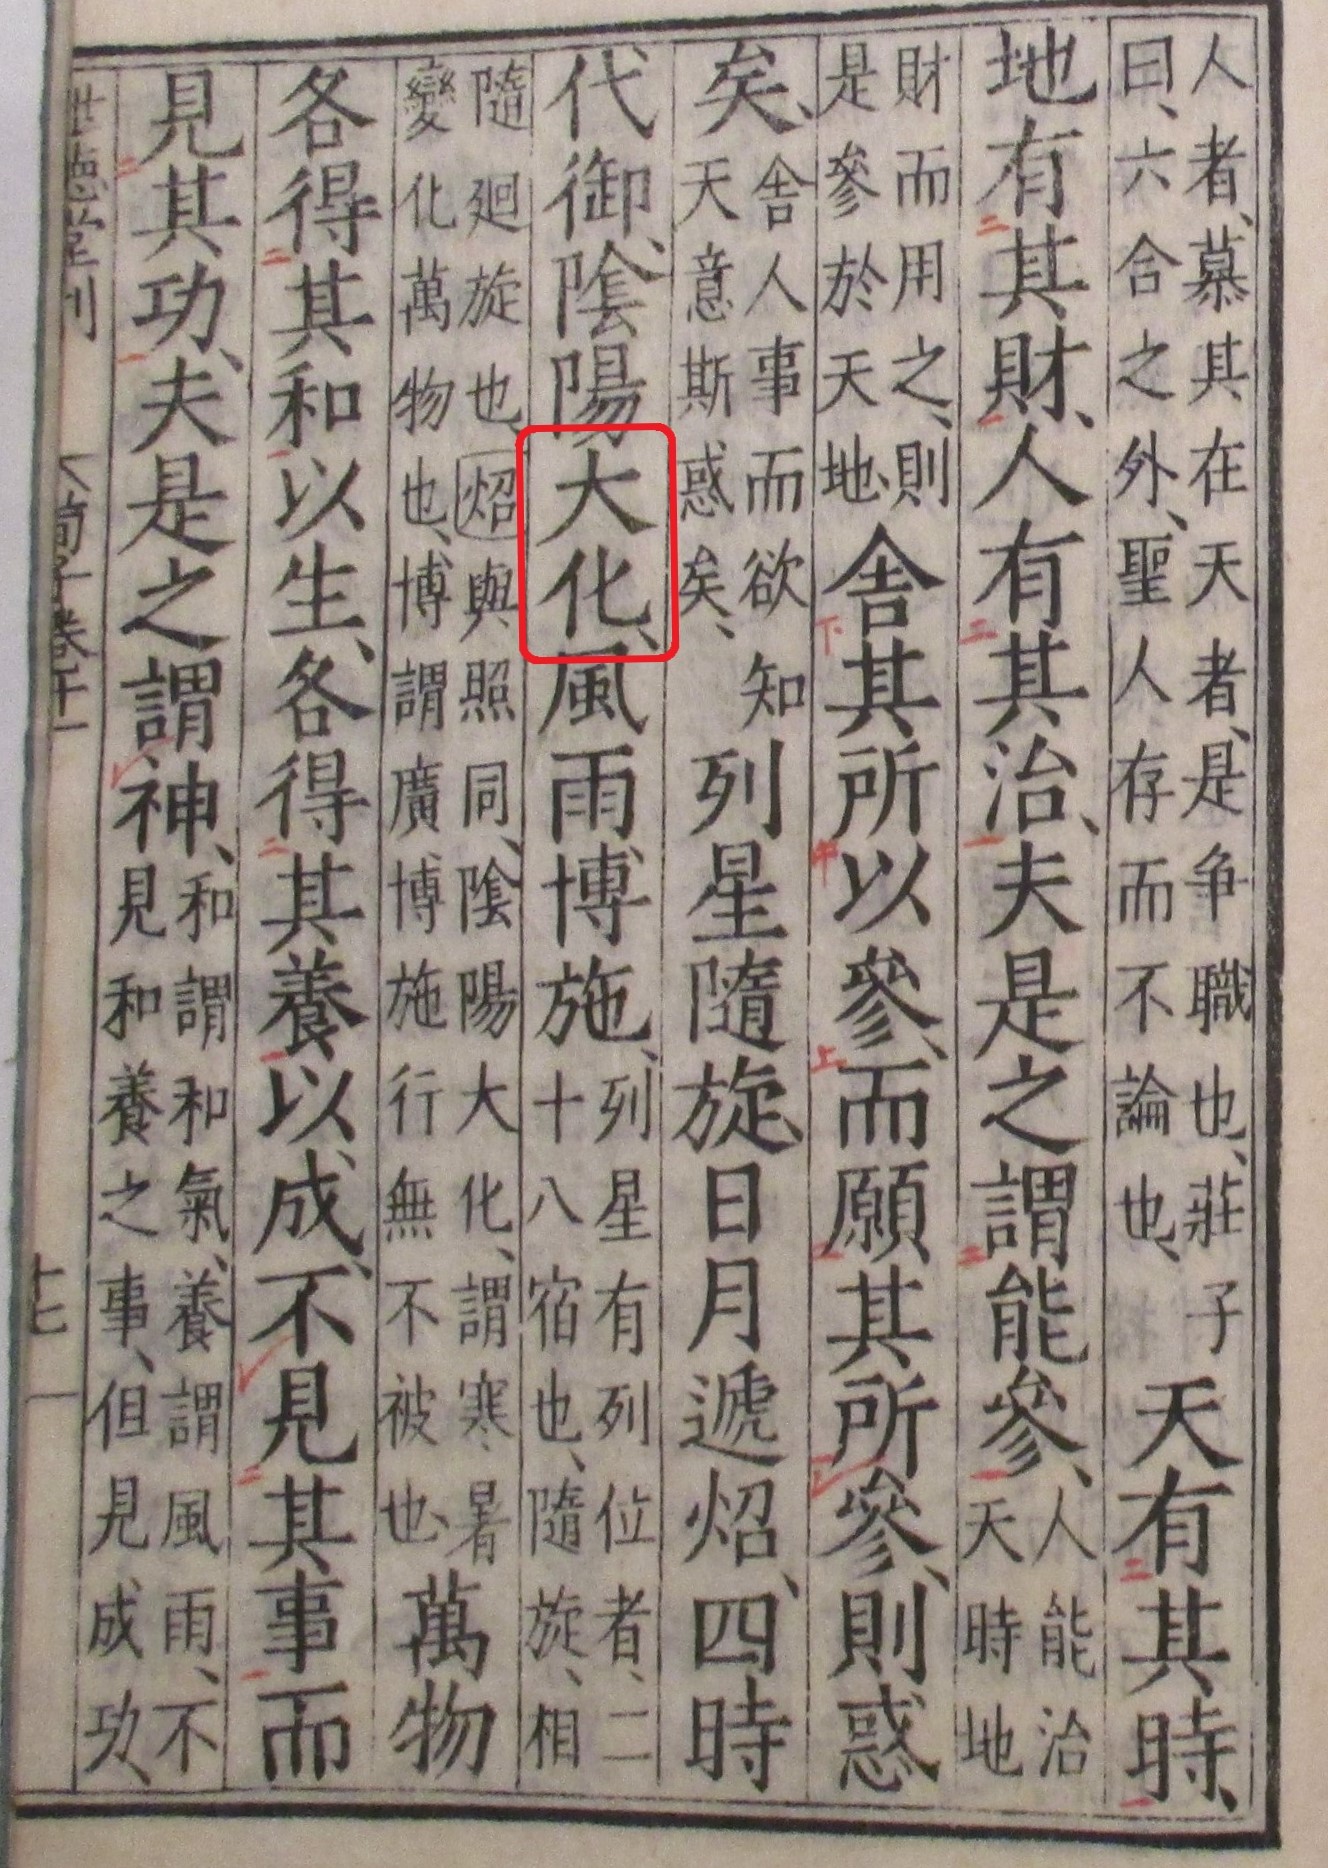 人者、慕其在天者、是争職也、莊子
曰、六合之外、聖人存而不論也、
天有其時、
地有其財、人有其治、夫是之謂能參、
人能治
天時地
財而用之、則
是參於天地、
舍其所以參、而願其所參、則惑
矣、
舍人事而欲知
天意斯惑矣、
列星隨旋、日月遞炤、四時
代御、陰陽大化、風雨博施、
列星有列位者、二
十八宿也、隨旋、相
隨廻旋也、炤與照同、陰陽大化、謂寒暑
變化萬物也、博謂廣博施行無不被也、
萬物
各得其和以生、各得其養以成、不見其事而
見其功、夫是之謂神、
和謂和氣、養謂風雨、不
見和養之事、但見成功、
世德堂刊
荀子卷十一
十七